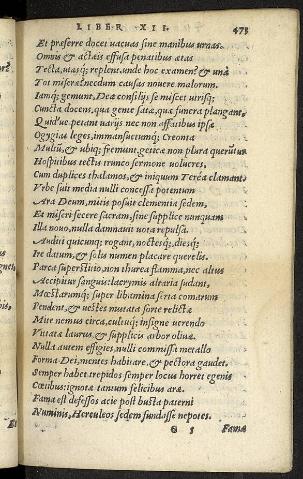 LIBER XII. 473
Et præferre docet uacuas sine manibus urnas.
Omnis & actæis effusa penatibus ætas
Tecta, uiasq; replent. unde hoc examen? & una
Tot miseræ? necdum causas nouere malorum.
Iamq; gemunt. Dea consilijs se miscet utrisq;
Cuncta docens, quæ gente satæ, quæ funera plangant,
Quid'ue petant. uarijs nec non affatibus ipsæ
Ogygias leges, immansuetumq; Creonta
Multũ, & ubiq; fremunt. geticæ non plura queruntur
Hospitibus tectis trunco sermone uolucres,
Cum duplices thalamos, & iniquum Terea clamant.
Vrbe fuit media nulli concessa potentum
Ara Deum, mitis posuit clementia sedem,
Et miseri fecere sacram, sine supplice nunquam
Illa nouo, nulla damnauit uota repulsa.
Auditi quicunq; rogant, noctesq;, diesq;
Ire datum, & solis numen placare querelis.
Parca superstitio, non thurea flamma, nec altus
Accipitur sanguis: lacrymis altaria sudant,
Mœstarumq; super libamina serta comarum
Pendent, & uestes mutata sorte relictæ
Mite nemus circa, cultuq; insigne uerendo
Vittatæ laurus & supplicis arbor oliuæ.
Nulla autem effigies, nulli commissa metallo
Forma Dei, mentes habitare, & pectora gaudet.
Semper habet trepidos semper locus horret egenis
Cœtibus: ignotæ tantum felicibus aræ.
Fama est defensos acie post busta paterni
Numinis, Herculeos sedem fundasse nepotes.
Famæ